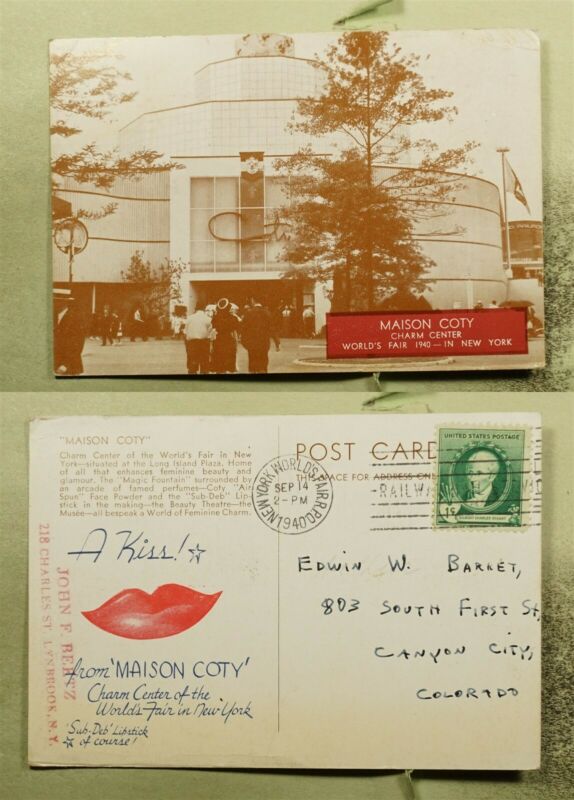 MAISON COTY
CHARM CENTER
WORLD'S FAIR 1940 — IN NEW YORK
"MAISON COTY"
Charm Center of the World's Fair in New
York—situated at the Long Island Plaza. Home
of all that enhances feminine beauty and
glamour. The "Magic Fountain" surrounded by
an arcade of famed perfumes—Coty "Air
Spun" Face Powder and the "Sub-Deb" Lip-
stick in the making—the Beauty Theatre—the
Musée—all bespeak a World of Feminine Charm.
A Kiss! ☆
from 'MAISON COTY'
Charm Center of the
World's Fair in New York
'Sub-Deb' Lipstick
☆ of course!
JOHN F.
218 CHARLES ST. LYNBROOK, N.Y.
POST CARD
THIS SPACE FOR ADDRESS ONLY
NEW YORK WORLD'S FAIR
SEP 14
2-PM
1940
RAILW
UNITED STATES POSTAGE
1¢
GILBERT CHARLES STUART
EDWIN W. BARRET,
803 SOUTH FIRST St,
CANYON CITY,
COLORADO